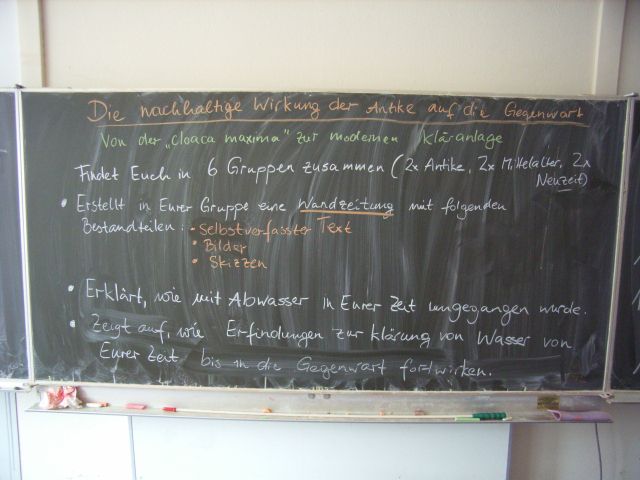 Die nachhaltige Wirkung der Antike auf die Gegenwart
Von der „Cloaca maxima" zur modernen Kläranlage
Findet Euch in 6 Gruppen zusammen (2x Antike, 2x Mittelalter, 2x
Neuzeit)
• Erstellt in Eurer Gruppe eine Wandzeitung mit folgenden
Bestandteilen: • Selbstverfasster Text
• Bilder
• Skizzen
• Erklärt, wie mit Abwasser in Eurer Zeit umgegangen wurde.
• Zeigt auf, wie Erfindungen zur Klärung von Wasser von
Eurer Zeit bis in die Gegenwart fortwirken.